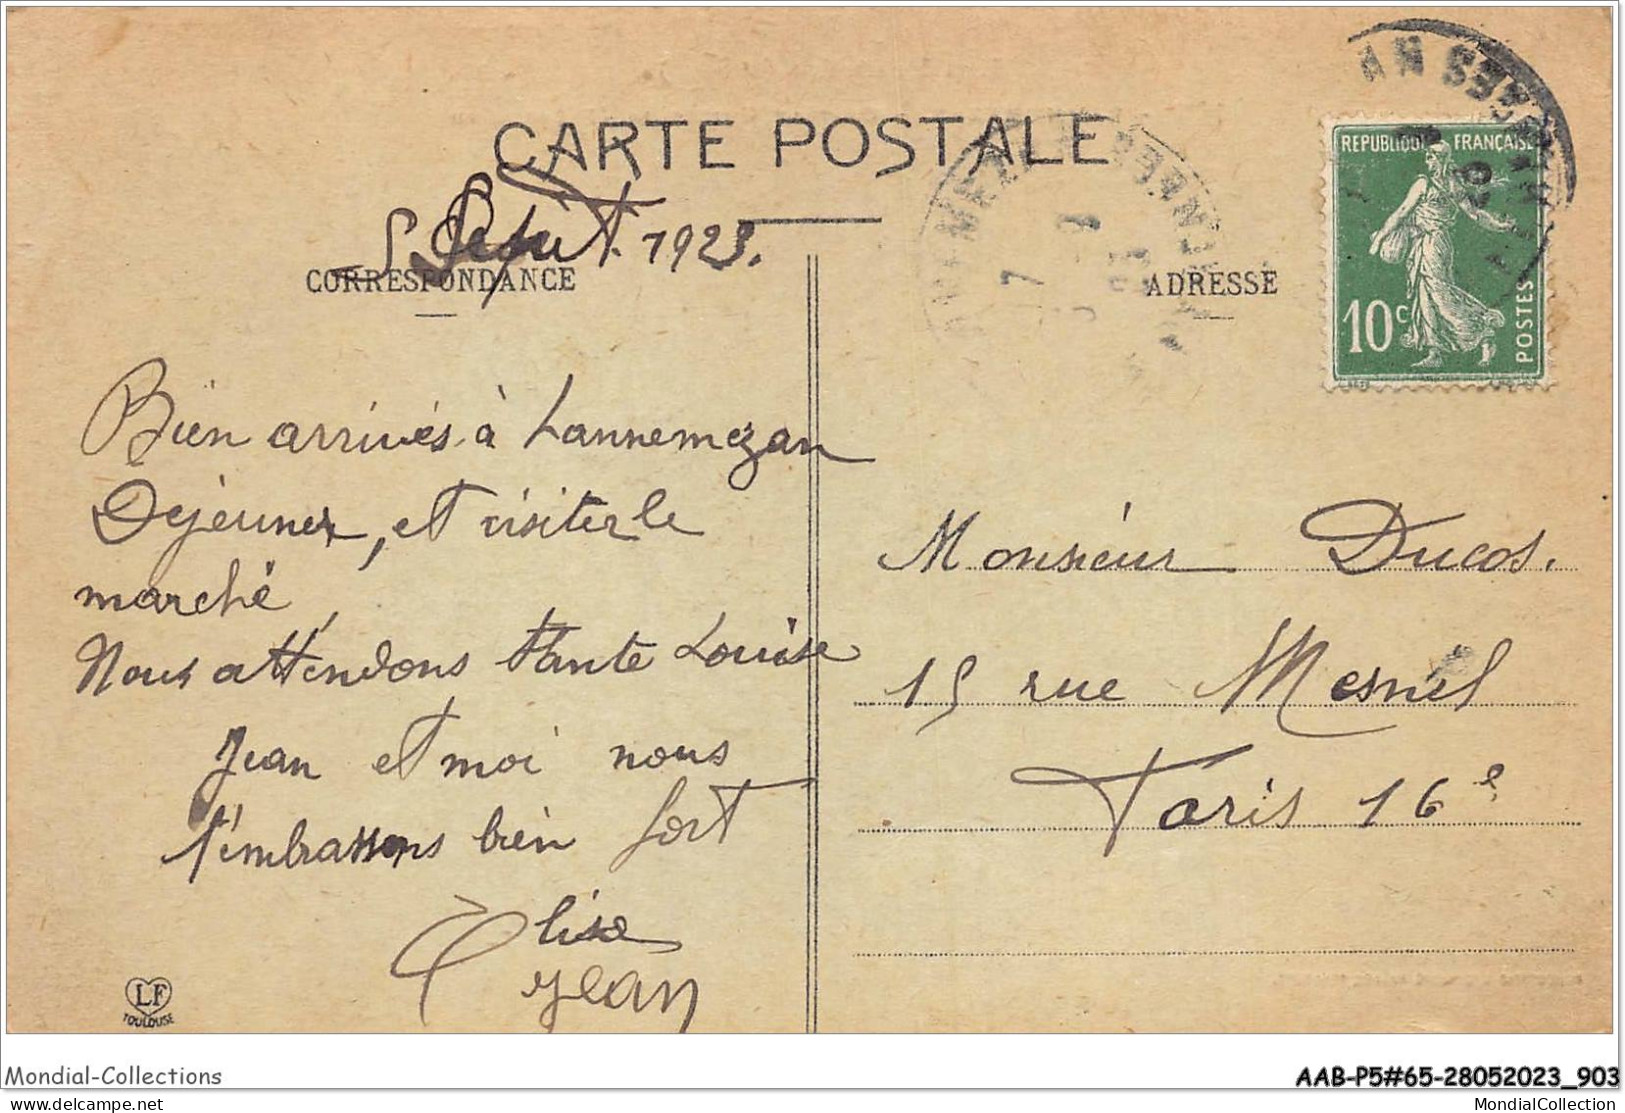 CARTE POSTALE
5 Sept. 1923.
CORRESPONDANCE
Bien arrivés à Lannemezan
Déjeuner, et visiter le
marché
Nous attendons ttante Louise
Jean et moi nous
t'embrassons bien fort
Elise
Jean
LF
TOULOUSE
ADRESSE
REPUBLIQUE FRANÇAISE
10c
POSTES
Monsieur Ducos.
15 rue Mesnil
Paris 16e
Mondial-Collections
AAB-P5#65-28052023_903
delcampe.net
MondialCollection